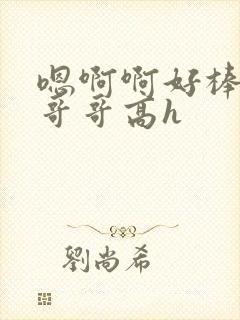 嗯啊啊好棒
哥哥高h
劉尚希